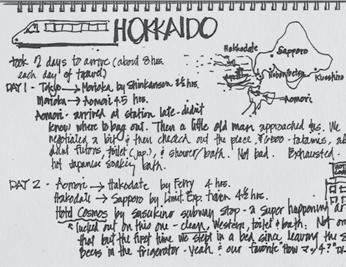 HOKKAIDO
took 2 days to arrive (about 8 hrs.
each day of travel)
Hakodate
Sapporo
Kushiro
Aomori
DAY 1 - Tokyo → Morioka by Shinkansen 2½ hrs.
Morioka → Aomori 4.5 hrs.
Aomori - arrived at station late - didn't
know where to hang out. Then a little old man approached us. We
negotiated a bit & then checked out the place, tatamis,
futons, toilet (jap.), & shower/bath. Not bad. Exhausted.
hot Japanese bath.
DAY 2 - Aomori → Hakodate by Ferry 4 hrs.
Hakodate → Sapporo by Limit. Exp. train 4½ hrs.
Hotel Cosmos by Susukino subway stop - a super happening
lucked out on this one - clean, western, toilet & bath. Not
that but the first time we slept in a bed since leaving the
Beers in the frigerator - yeah & our favorite